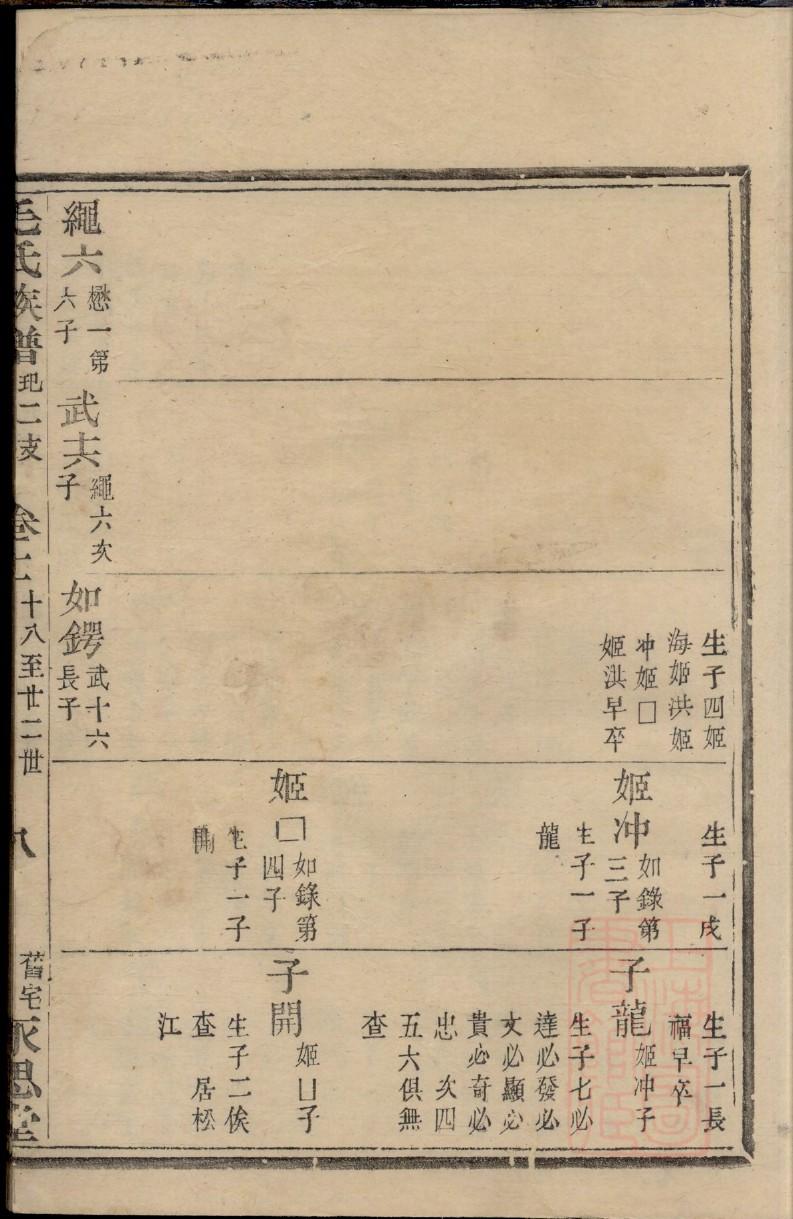 生子四姬
海姬洪姬
冲姬□
姬洪早卒
生子一戌
姬冲
如錄第
三子
生子一子
龍
姬□
如錄第
四子
生子一子
開
生子一長
福早卒
子龍
姬冲子
生子七必
達必發必
文必顯必
貴必奇必
忠 次四
五六俱無
查
子開
姬□子
生子二俟
查 居松
江
繩六
懋一第
六子
武十六
繩六次
子
如鍔
武十六
長子
毛氏族譜
玘二支
卷二
十八至廿二世
八
舊宅
永思堂